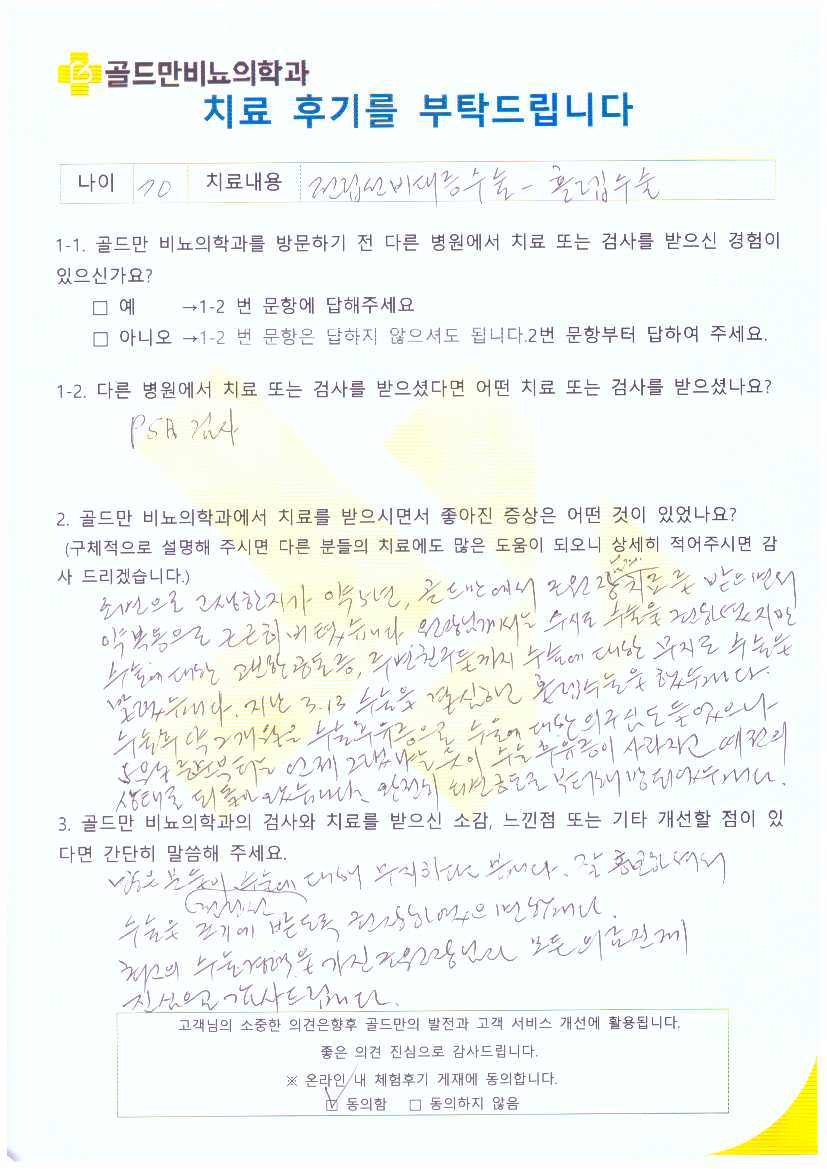 골드만비뇨의학과
치료 후기를 부탁드립니다
나이 70 치료내용 전립선비대증수술 - 홀렙수술
1-1. 골드만 비뇨의학과를 방문하기 전 다른 병원에서 치료 또는 검사를 받으신 경험이
있으신가요?
□ 예 →1-2 번 문항에 답해주세요
□ 아니오 →1-2 번 문항은 답하지 않으셔도 됩니다.2번 문항부터 답하여 주세요.
1-2. 다른 병원에서 치료 또는 검사를 받으셨다면 어떤 치료 또는 검사를 받으셨나요?
PSA 검사
2. 골드만 비뇨의학과에서 치료를 받으시면서 좋아진 증상은 어떤 것이 있었나요?
(구체적으로 설명해 주시면 다른 분들의 치료에도 많은 도움이 되오니 상세히 적어주시면 감
사 드리겠습니다.)
고생한지가 약 5년, 골드만에서 조원장님께 치료를 받으면서
약복용으로 근근히 버텼습니다 원장님께서는 수시로 수술을 권하였지만
수술에 대한 막연한 공포증, 주변친구들까지 수술에 대한 무지로 수술을
지난 3.13 수술을 결심하고 홀렙수술을 했습니다.
수술후 약 2개월은 수술후유증으로 수술에 대한 의구심도 들었으나
5월 부터는 언제 그랬냐는 듯이 수술후유증이 사라지고 예전의
상태로 되돌아 왔습니다. 완전히 배변공포로 부터 해방되었습니다.
3. 골드만 비뇨의학과의 검사와 치료를 받으신 소감, 느낀점 또는 기타 개선할 점이 있
다면 간단히 말씀해 주세요.
많은 분들이 전립선 수술에 대해 무지하다 봅니다. 잘 홍보하셔서
수술을 조기에 받도록 권장하였으면 합니다.
최고의 수술경력을 가진 조원장님과 모든 의료진께
진심으로 감사드립니다.
고객님의 소중한 의견은향후 골드만의 발전과 고객 서비스 개선에 활용됩니다.
좋은 의견 진심으로 감사드립니다.
※ 온라인 내 체험후기 게재에 동의합니다.
☑ 동의함 □ 동의하지 않음